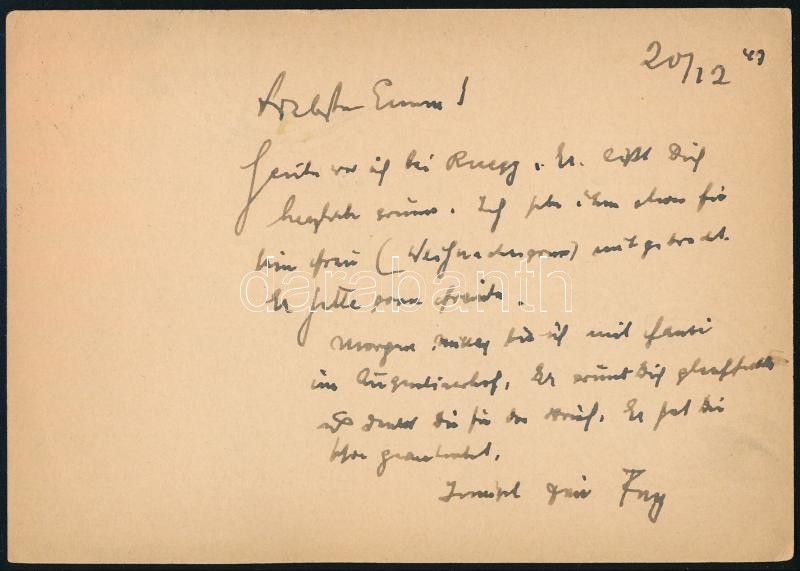 20/12 47
Liebste Emma!
Heute war ich bei Ruegg. Er läßt Dich
herzlich grüssen. Ich habe ihm etwas für
seine Frau (Weihnachtsgruss) mitgebracht.
Er hatte grosse Freude.
Morgen Mittag bin ich mit
im Augustinerhof. Er grüsst Dich
und dankt Dir für den Brief. Er hat Dir
schon geantwortet.
Dein
darabanth